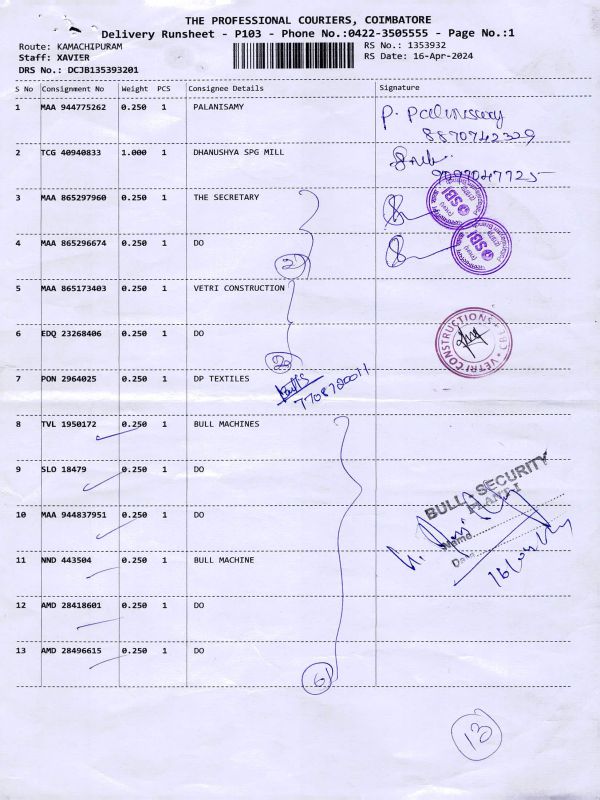 THE PROFESSIONAL COURIERS, COIMBATORE
Delivery Runsheet - P103 - Phone No.:0422-3505555 - Page No.:1
Route: KAMACHIPURAM RS No.: 1353932
Staff: XAVIER RS Date: 16-Apr-2024
DRS No.: DCJB135393201
S No Consignment No Weight PCS Consignee Details Signature
1 MAA 944775262 0.250 1 PALANISAMY P. Palanisamy
8870742329
2 TCG 40940833 1.000 1 DHANUSHYA SPG MILL
9097047725
3 MAA 865297960 0.250 1 THE SECRETARY
SBI
4 MAA 865296674 0.250 1 DO
SBI
2
5 MAA 865173403 0.250 1 VETRI CONSTRUCTION
VETRI CONSTRUCTIONS
6 EDQ 23268406 0.250 1 DO
2
7 PON 2964025 0.250 1 DP TEXTILES
7708720011
8 TVL 1950172 0.250 1 BULL MACHINES
9 SLO 18479 0.250 1 DO
BULL SECURITY
PLANT I
10 MAA 944837951 0.250 1 DO
Name
Date
11 NND 443504 0.250 1 BULL MACHINE
12 AMD 28418601 0.250 1 DO
13 AMD 28496615 0.250 1 DO
6
13